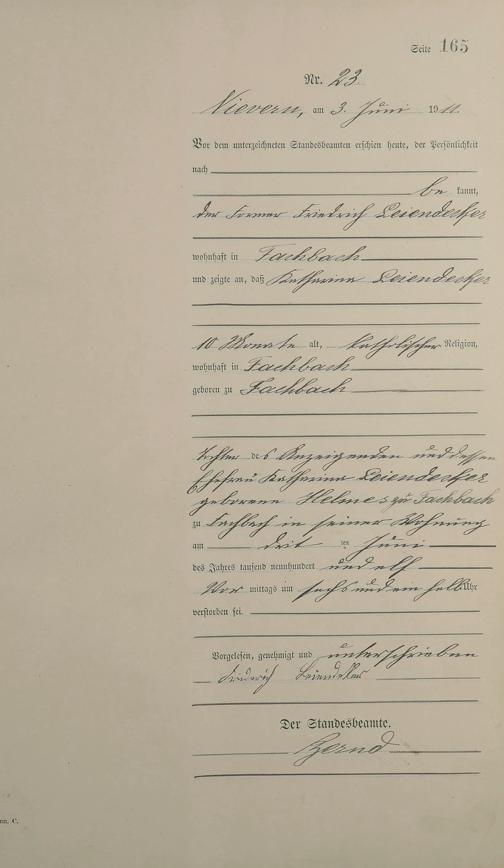 Seite 165
Nr. 23.
Nievern, am 3. Juni 1911.
Vor dem unterzeichneten Standesbeamten erschien heute, der Persönlichkeit
nach
be kannt,
der Former Friedrich Leiendecker
wohnhaft in Fachbach
und zeigte an, daß Katharina Leiendecker
10 Monate alt, katholischer Religion,
wohnhaft in Fachbach
geboren zu Fachbach
Tochter des Anzeigenden und dessen
Ehefrau Katharina Leiendecker
geborene Helmes zu Fachbach
zu Fachbach in seiner Wohnung
am drit ten Juni
des Jahres tausend neunhundert und elf
Vor mittags um sechs und ein halb Uhr
verstorben sei.
Vorgelesen, genehmigt und unterschrieben
Friederich Leiendecker
Der Standesbeamte.
C.